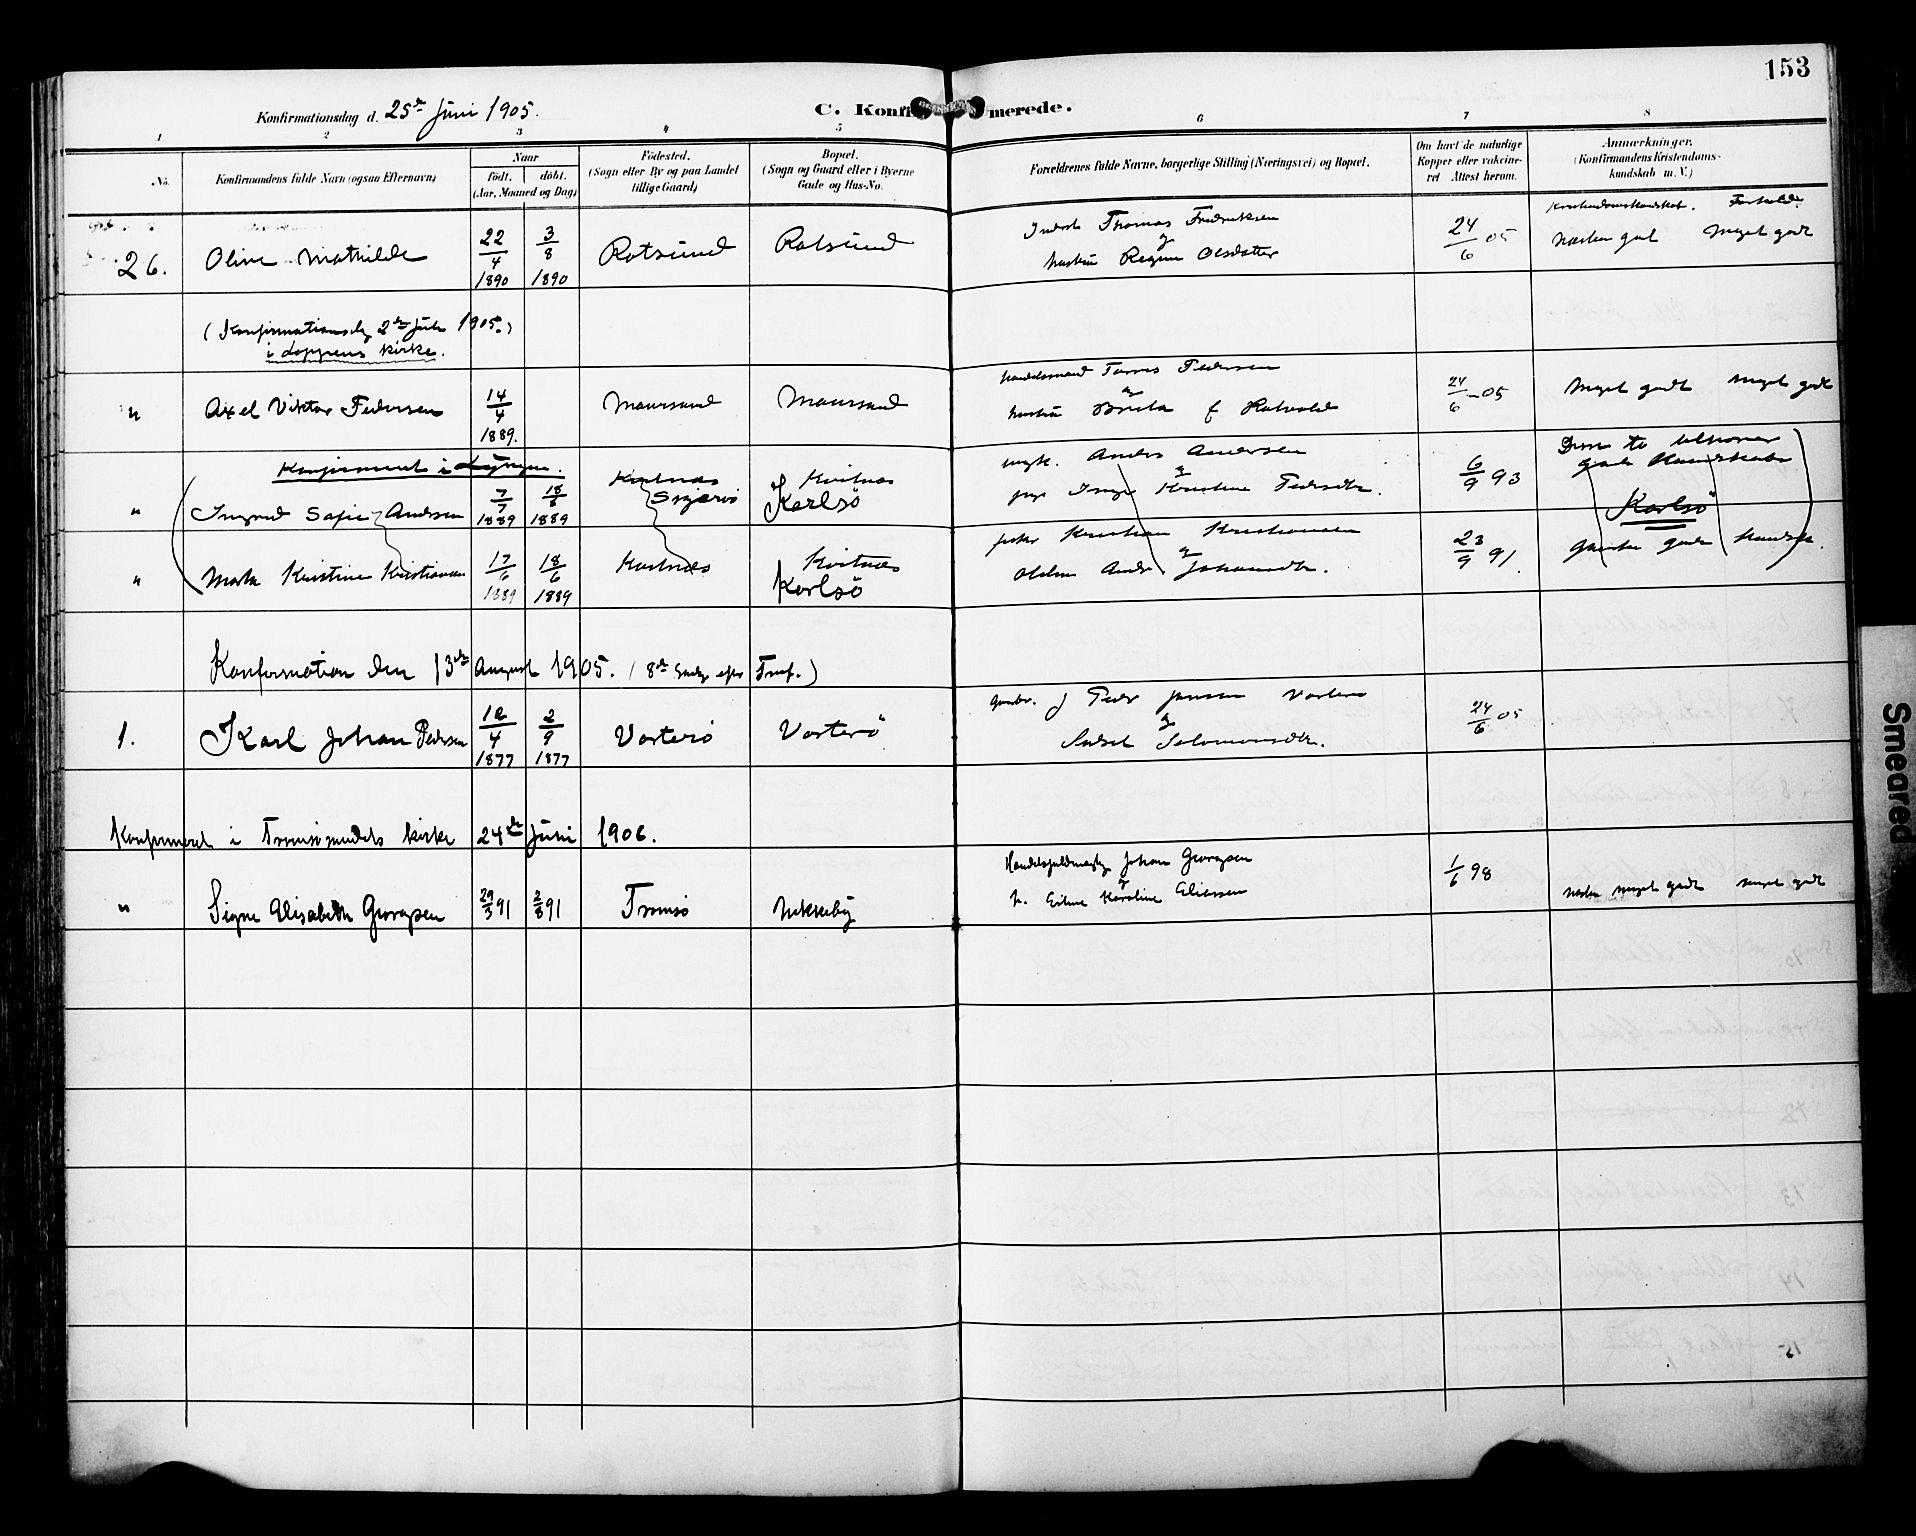 153
Konfirmationsdag d. 25de Juni 1905.
C. Konfirmerede.
1 2 3 4 5 6 7 8
No.
Konfirmandens fulde Navn (ogsaa Efternavn)
Naar
födt. döbt.
(Aar, Maaned og Dag)
Födested.
(Sogn eller By og paa Landet tillige Gaard)
Bopæl.
(Sogn og Gaard eller i Byerne Gade og Hus-No.
Forældrenes fulde Navne, borgerlige Stilling (Næringsvei) og Bopæl.
Om havt de naturlige Kopper eller vaccineret Attest herom.
Anmærkninger.
(Konfirmandens Kristendomskundskab m. V.)
Kristendomskundskab. Forhold
26. Oline Mathilde 22/4 1890 3/8 1890 Rotsund Rotsund
Thomas Fredriksen
og
hustru Regine Olsdatter
24/6 05 Næsten godt Meget godt
(Konfirmationsdag 2den Juli 1905.)
i Loppens kirke.
" Axel Viktor Pedersen 14/4 1889. Maursund Maursund
Pedersen
og
hustru Berita f
24/6 - 05 Meget godt meget godt
Konfirmeret i Lyngen.
" Ingvid Sofie Andersen 7/7 1889 18/8 1889 Kvitnes Karlsö
Anders Andersen
og
Kristine Pedersdtr.
6/9 93
Karlsö
" Marta Kristine Kristiansen 17/6 1889 18/6 1889 Kvitnæs Karlsö
Kristian Kristiansen
og
Johansdtr.
23/9 91.
ganske god
Konfirmation den 13de August 1905. (8de Søndag efter Tref.)
1. Karl Johan Pedersen 12/4 1877 2/9 1877 Vorterö Vorterö
gaardbr. Peder Jensen Vorterö
og
Salomonsdtr.
24/6 05
Konfirmeret i Tromsösundets kirke 24de Juni 1906.
" Signe Elisabeth Georgsen 29/3 91 2/8 91 Tromsö Nikkeby
Handelsfuldmægtig Johan Georgsen
og
h. Karoline Eliassen
1/6 98 næsten meget godt meget godt
Smeared